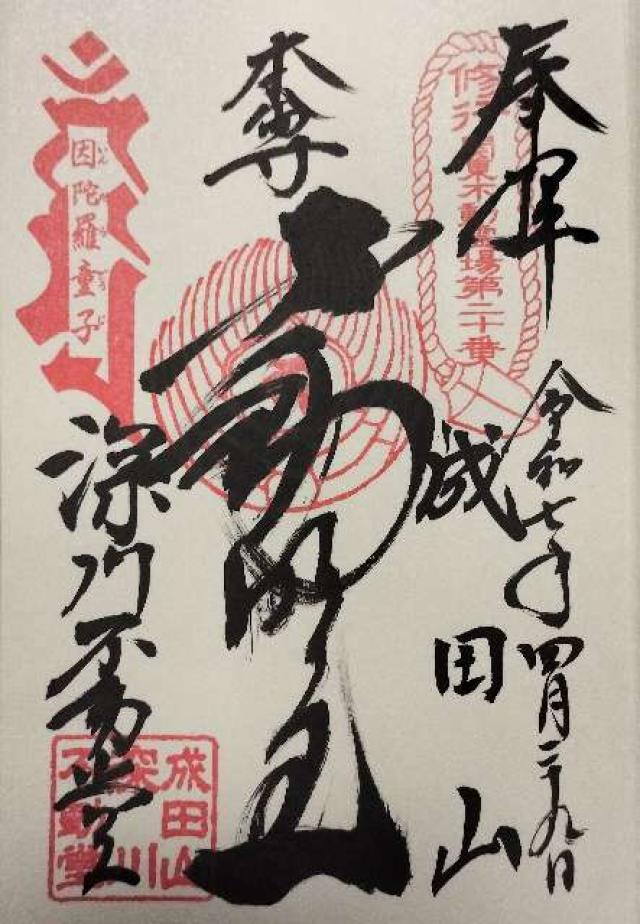 奉拝
修行 関東不動霊場第二十番
令和七年四月二十九日
成田山
本尊
不動明王
因陀羅童子
いんだらどうじ
深川不動堂
成田山
深川
不動堂